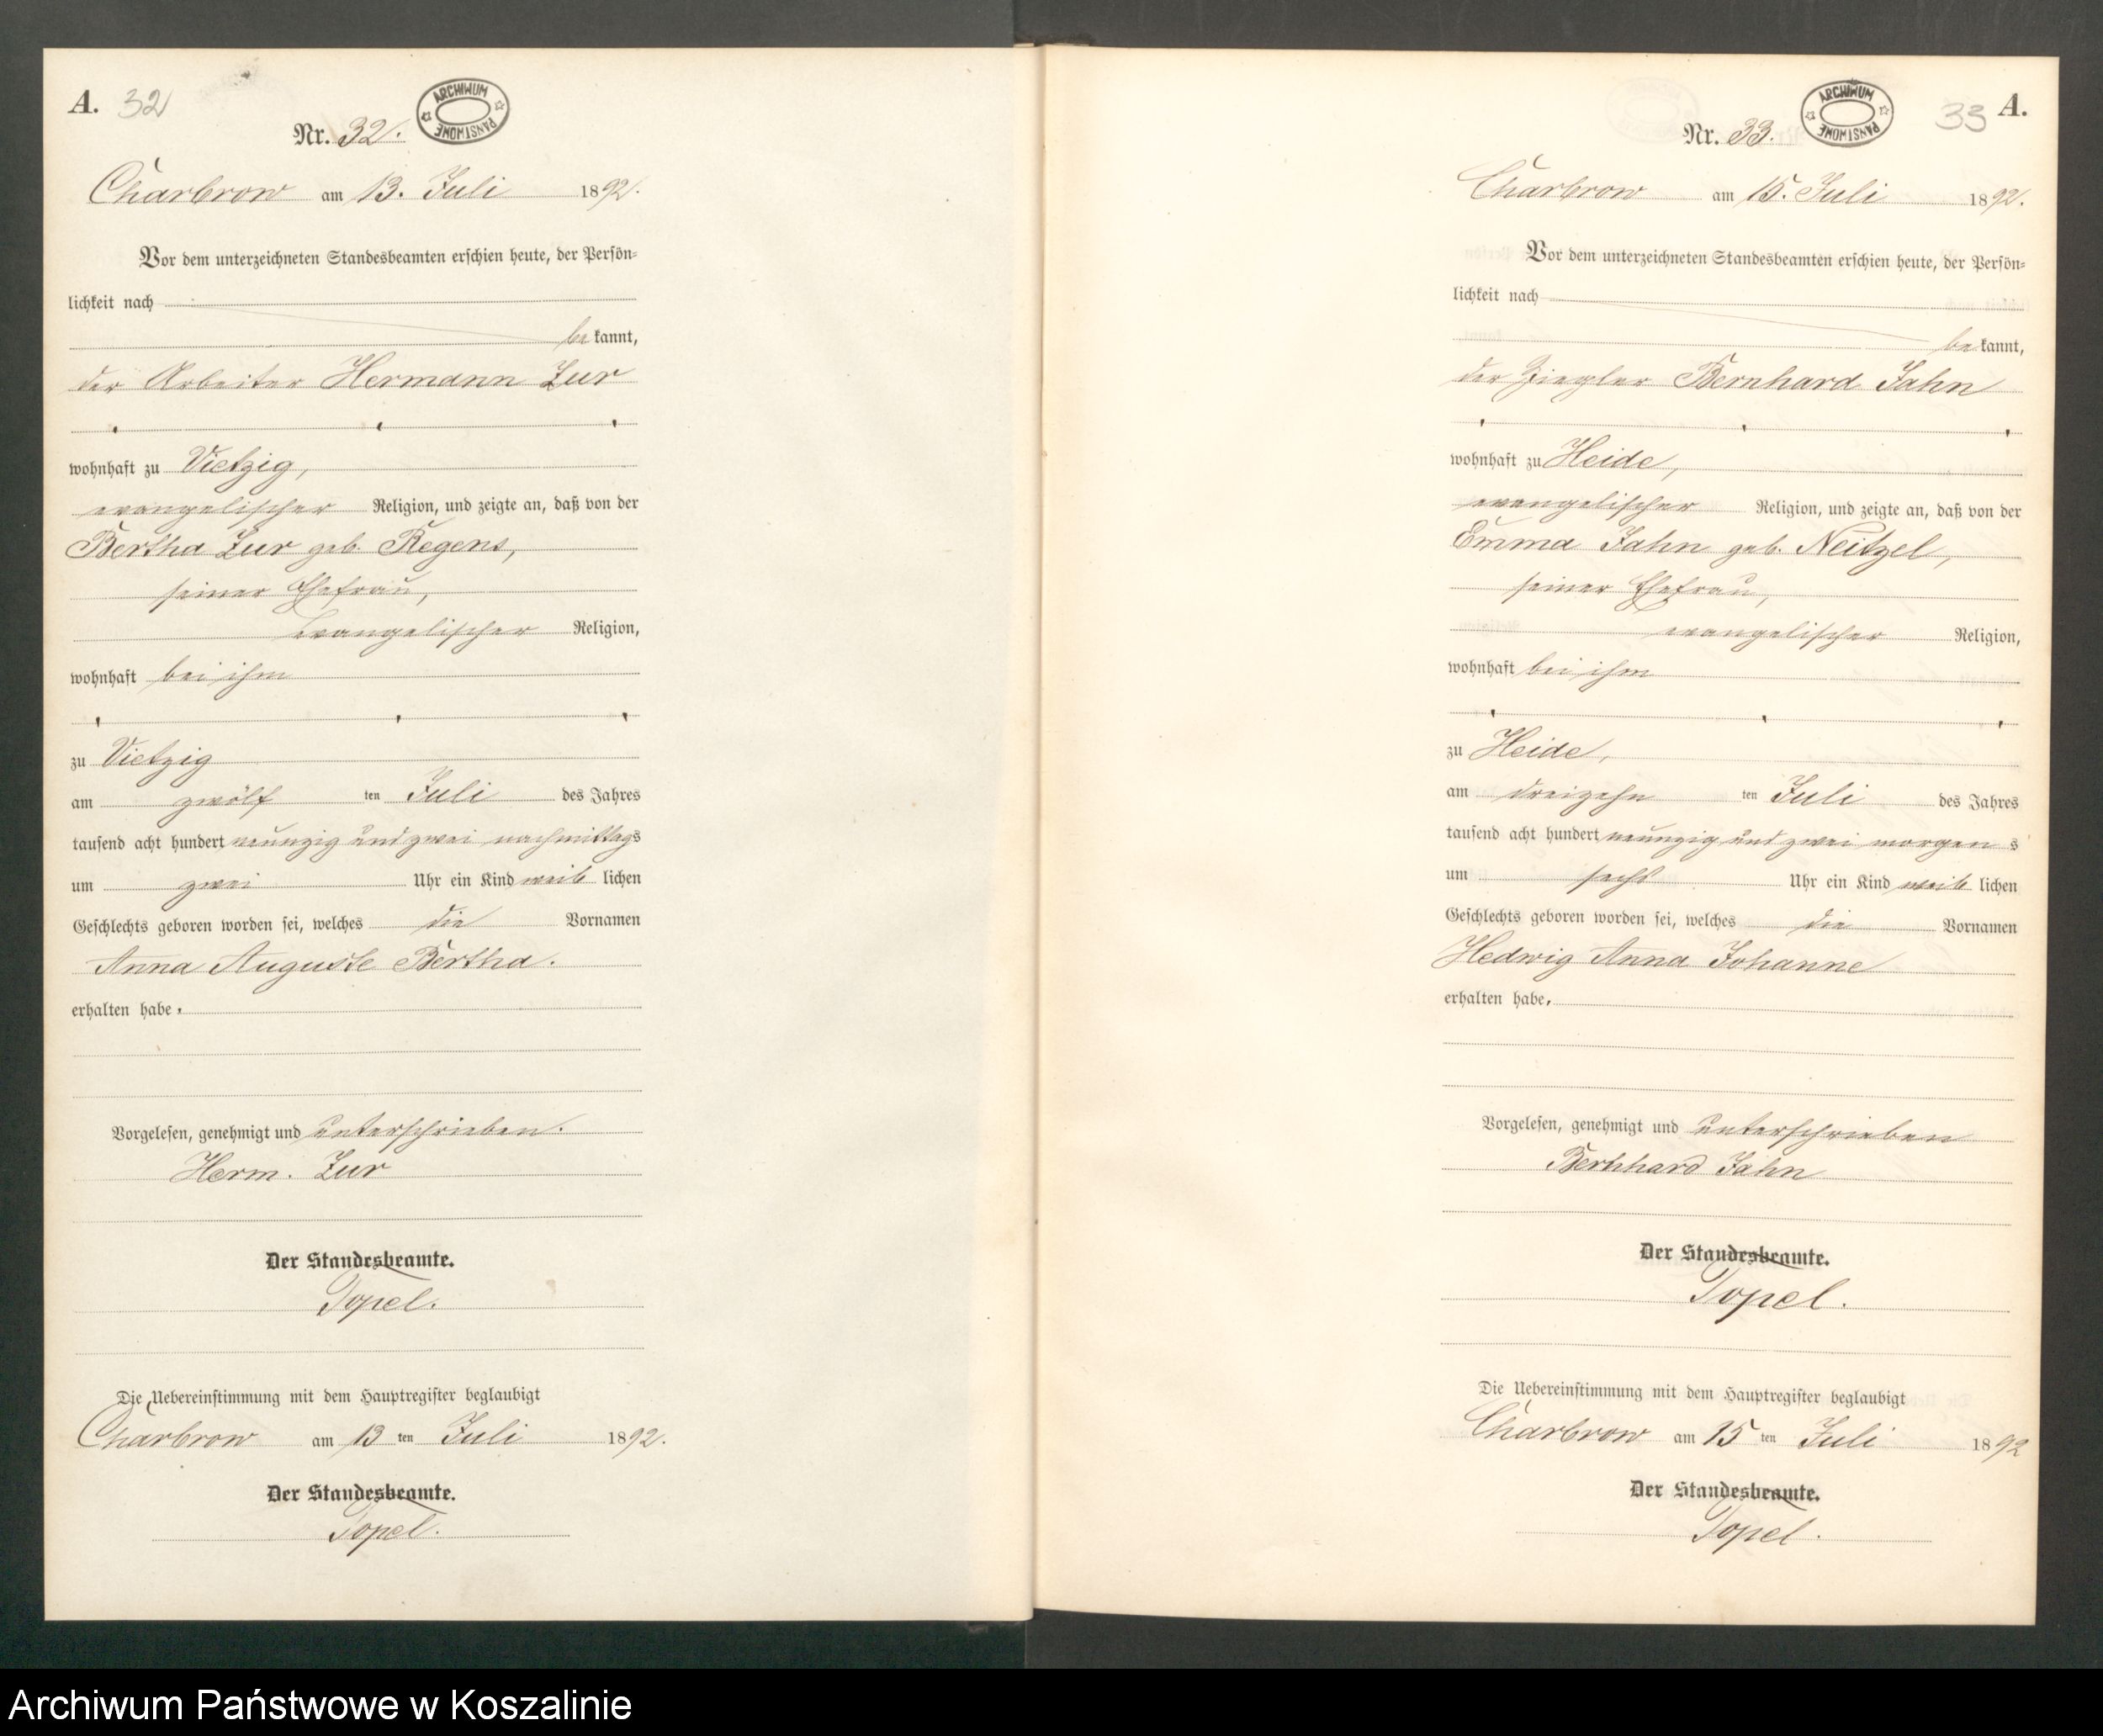 A. 32
ARCHIWUM PAŃSTWOWE
Nr. 32.
Charbrow am 13. Juli 1892.
Vor dem unterzeichneten Standesbeamten erschien heute, der Persön-
lichkeit nach
bekannt,
der Arbeiter Hermann Zur
wohnhaft zu Vietzig,
evangelischer Religion, und zeigte an, daß von der
Bertha Zur geb. Regens,
seiner Ehefrau,
evangelischer Religion,
wohnhaft bei ihm
zu Vietzig
am zwölf ten Juli des Jahres
tausend acht hundert neunzig und zwei nachmittags
um zwei Uhr ein Kind weiblichen
Geschlechts geboren worden sei, welches die Vornamen
Anna Auguste Bertha.
erhalten habe.
Vorgelesen, genehmigt und unterschrieben.
Herm. Zur
Der Standesbeamte.
Topel.
Die Uebereinstimmung mit dem Hauptregister beglaubigt
Charbrow am 13 ten Juli 1892.
Der Standesbeamte.
Topel.
33 A.
ARCHIWUM PAŃSTWOWE
Nr. 33.
Charbrow am 15. Juli 1892.
Vor dem unterzeichneten Standesbeamten erschien heute, der Persön-
lichkeit nach
bekannt,
der Ziegler Bernhard Jahn
wohnhaft zu Heide,
evangelischer Religion, und zeigte an, daß von der
Emma Jahn geb. Neitzel,
seiner Ehefrau,
evangelischer Religion,
wohnhaft bei ihm
zu Heide,
am dreizehn ten Juli des Jahres
tausend acht hundert neunzig und zwei morgens
um sechs Uhr ein Kind weiblichen
Geschlechts geboren worden sei, welches die Vornamen
Hedwig Anna Johanne
erhalten habe.
Vorgelesen, genehmigt und unterschrieben
Bernhard Jahn
Der Standesbeamte.
Topel.
Die Uebereinstimmung mit dem Hauptregister beglaubigt
Charbrow am 15 ten Juli 1892
Der Standesbeamte.
Topel.
Archiwum Państwowe w Koszalinie